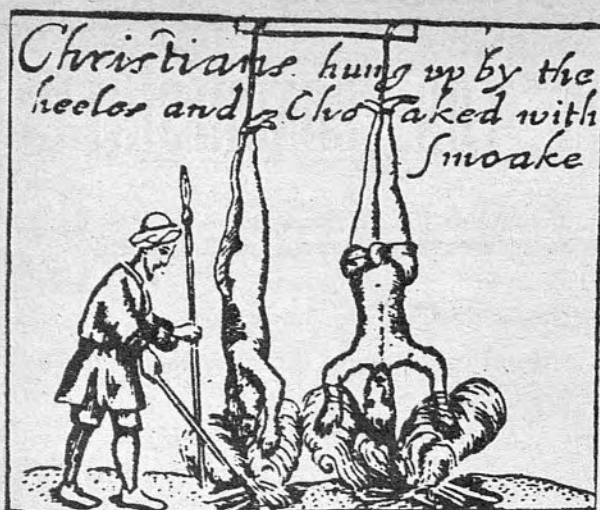 Christians hung up by the
heeles and Choaked with
smoake